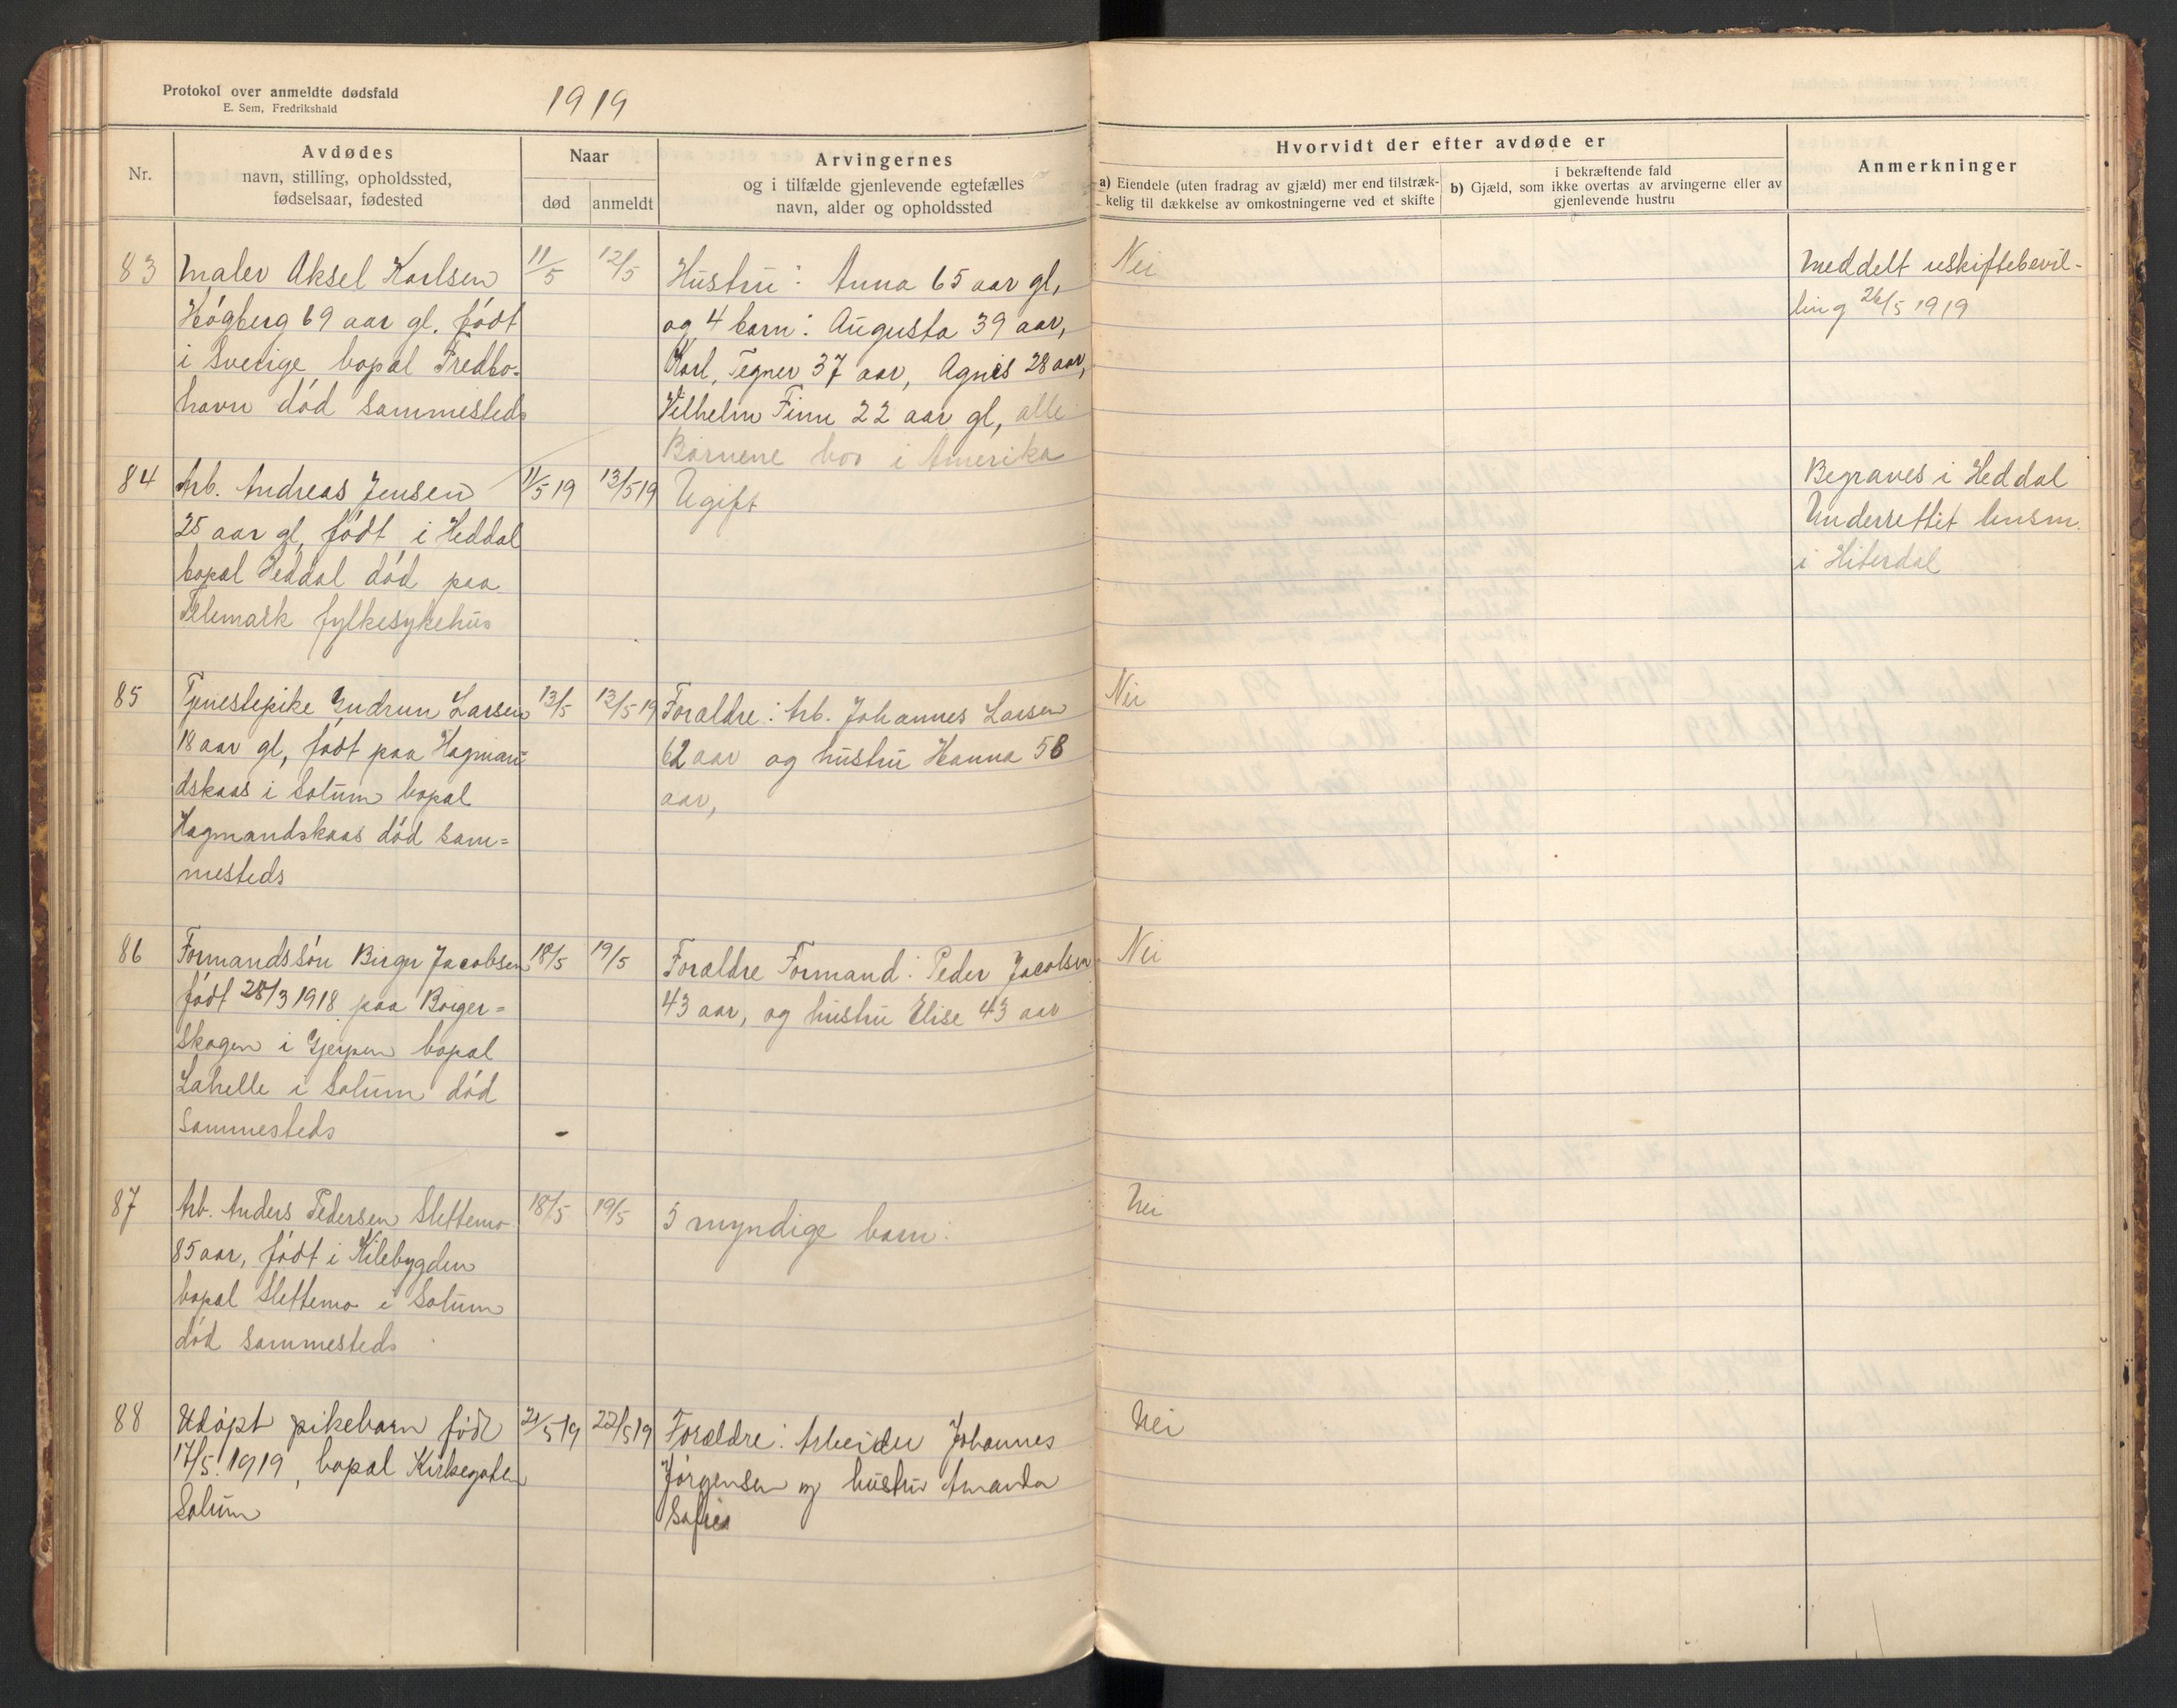 Protokol over anmeldte dødsfald
E. Sem, Fredrikshald
1919
Nr.
Avdødes
navn, stilling, opholdssted,
fødselsaar, fødested
Naar
død
anmeldt
Arvingernes
og i tilfælde gjenlevende egtefælles
navn, alder og opholdssted
Hvorvidt der efter avdøde er
a) Eiendele (uten fradrag av gjæld) mer end tilstræk-
kelig til dækkelse av omkostningerne ved et skifte
i bekræftende fald
b) Gjæld, som ikke overtas av arvingerne eller av
gjenlevende hustru
Anmerkninger
83
Maler Aksel Karlsen
Högberg 69 aar gl. födt
i Sverige bopal Fredbo-
havn död sammesteds
11/5
12/5
Hustru: Anna 65 aar gl,
og 4 barn: Augusta 39 aar,
Karl, Tegner 37 aar, Agnes 28 aar,
Vilhelm Finn 22 aar gl, alle
Barnene bor i Amerika
Nei
Meddelt uskiftebevil-
ling 26/5 1919
84
Arb. Andreas Jensen
25 aar gl, födt i Heddal
bopal Heddal död paa
Telemark fylkesykehus
11/5 19
13/5 19
Ugift
Begraves i Heddal
Underrettet lensm.
i Hiterdal
85
Tjenestepike Gudrun Larsen
18 aar gl, födt paa Hagman-
dskaas i Solum bopal
Hagmandskaas död sam=
mesteds
13/5
13/5 19
Foraldre: Arb. Johannes Larsen
62 aar og hustru Hanna 58
aar,
Nei
86
Formandssön Birger Jacobsen
födt 28/3 1918 paa Borger=
skogen i Gjerpen bopal
Lahelle i Solum död
Sammesteds
18/5
19/5
Foraldre Formand: Peder Jacobsen
43 aar, og hustru Elise 43 aar
Nei
87
Arb. Anders Pedersen Slettemo
85 aar, födt i Kilebygden
bopal Slettemo i Solum
död Sammesteds
18/5
19/5
5 myndige barn.
Nei
88
Udöpt pikebarn födt
17/5. 1919, bopal Kirkegaten
Solum
21/5 19
22/5 19
Foraldre: Arbeider Johannes
Jörgensen og hustru Amanda
Sofie
Nei